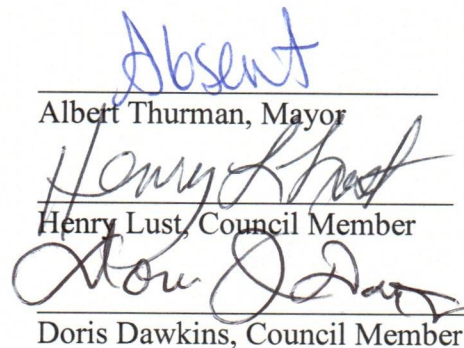 Absent
Albert Thurman, Mayor
Henry L Lust
Henry Lust, Council Member
Doris J Daw
Doris Dawkins, Council Member